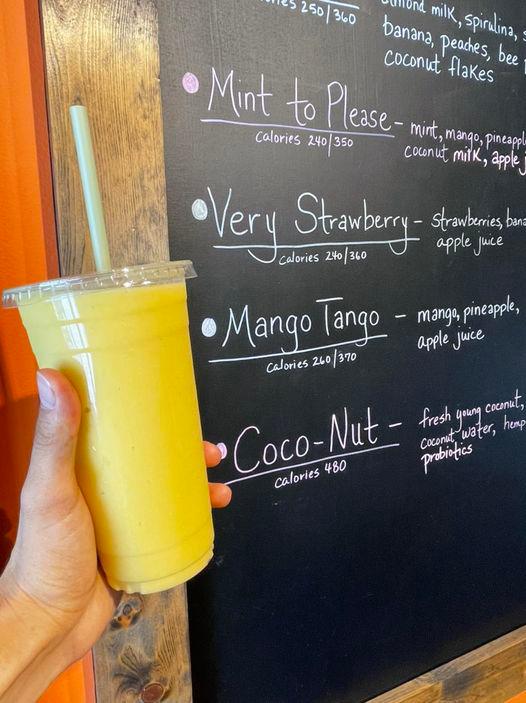 250/360
almond milk, spirulina,
banana, peaches, bee
coconut flakes
Mint to Please - mint, mango, pineapple
calories 240/350
coconut milk, apple
Very Strawberry - strawberries,
calories 240/360
apple juice
Mango Tango - mango, pineapple,
calories 260/370
apple juice
Coco-Nut - fresh young coconut,
calories 480
coconut water, hemp
probiotics